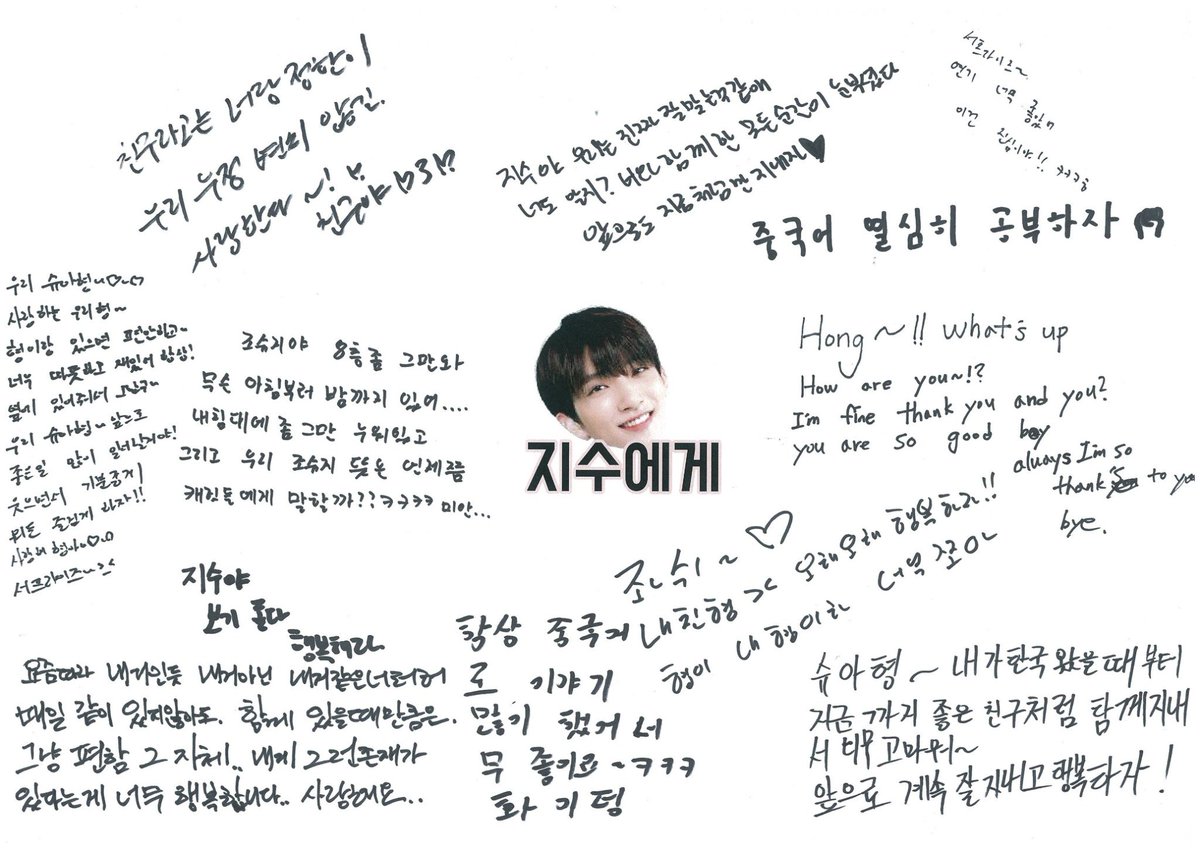 친구라고는 너랑 정한이
우리 우정 변치 않길.
사랑한다~!
친구야
지수야 우리는 진짜 잘맞는것같애
너도 알지? 너와 함께한 모든순간이 눈부셨다
앞으로도 지금처럼만 지내자♥
서프라이즈~
연기 너무 좋았어
이건 진심이야!! ㅋㅋㅋㅎ
중국어 열심히 공부하자
우리 슈아형~♡~♡
사랑하는 우리형~
형이랑 있으면 편안하고~
너무 따뜻하고 재밌어 항상!
옆에 있어줘서
우리 슈아형~ 앞으로
좋은일 많이 일어날거야!
웃으면서 기분좋게
뭐든 즐겁게 하자!!
사랑해 형아~♡.♡
서프라이즈~><
조슈지야 8층좀 그만와
무슨 아침부터 밤까지 있어....
내침대에 좀 그만 누워있고
그리고 우리 조슈지 뜻은 언제쯤
캐럿들에게 말할까??ㅋㅋㅋㅋ 미안...
지수에게
Hong~!! what's up
How are you~!?
I'm fine thank you and you?
you are so good boy
always I'm so
thank to you
bye.
지수야
보기 좋다
행복해라
요즘따라 내꺼인듯 내꺼아닌 내꺼같은너
매일 같이 있지않아도. 함께 있을때만큼은.
그냥 편함 그 자체.. 내게 그런존재가
있다는게 너무 행복합니다.. 사랑해요..
조슈지~ ♡
내친형 >< 오래오래 행복하자!!
형이 내 형이라 너무 좋아~
항상 중국어
로 이야기
많이 했거 너
무 좋아요~ㅋㅋㅋ
화이팅
슈아형~ 내가한국 왔을때부터
지금 까지 좋은친구처럼 함께지내
서 너무 고마워~
앞으로 계속 잘지내고 행복하자!